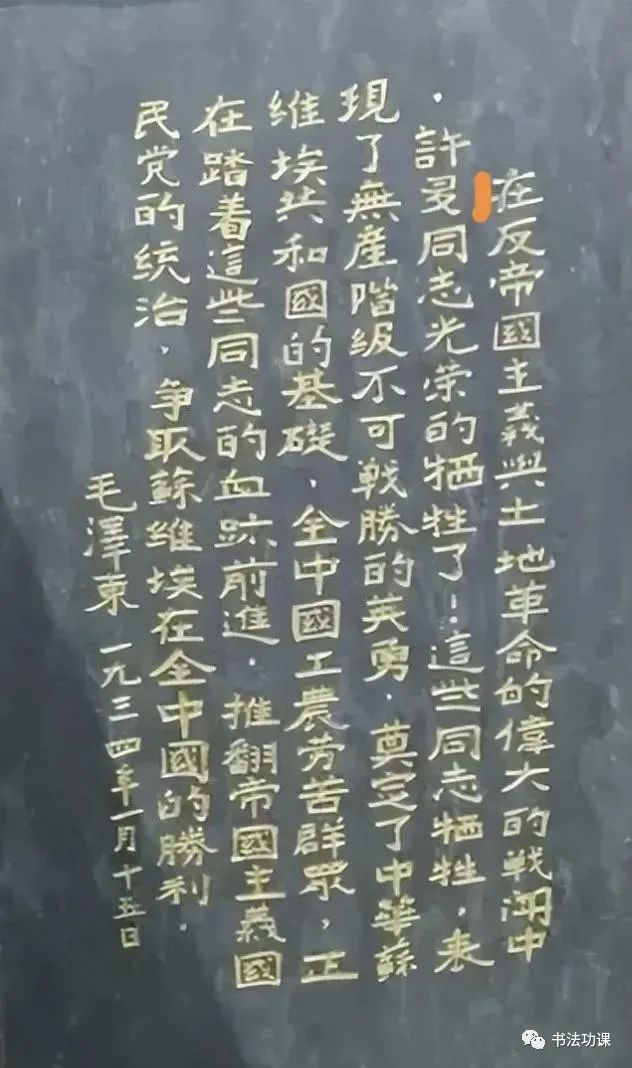 在反帝國主義與土地革命的偉大的戰鬥中
，許多同志光荣的牺牲了！這些同志牺牲，表
現了無產階級不可戰勝的英勇，奠定了中華蘇
維埃共和國的基礎，全中國工農劳苦群眾，正
在踏着這些同志的血跡前進，推翻帝國主義國
民党的統治，争取蘇維埃在全中國的勝利．
毛澤東 一九三四年一月十五日
书法功课